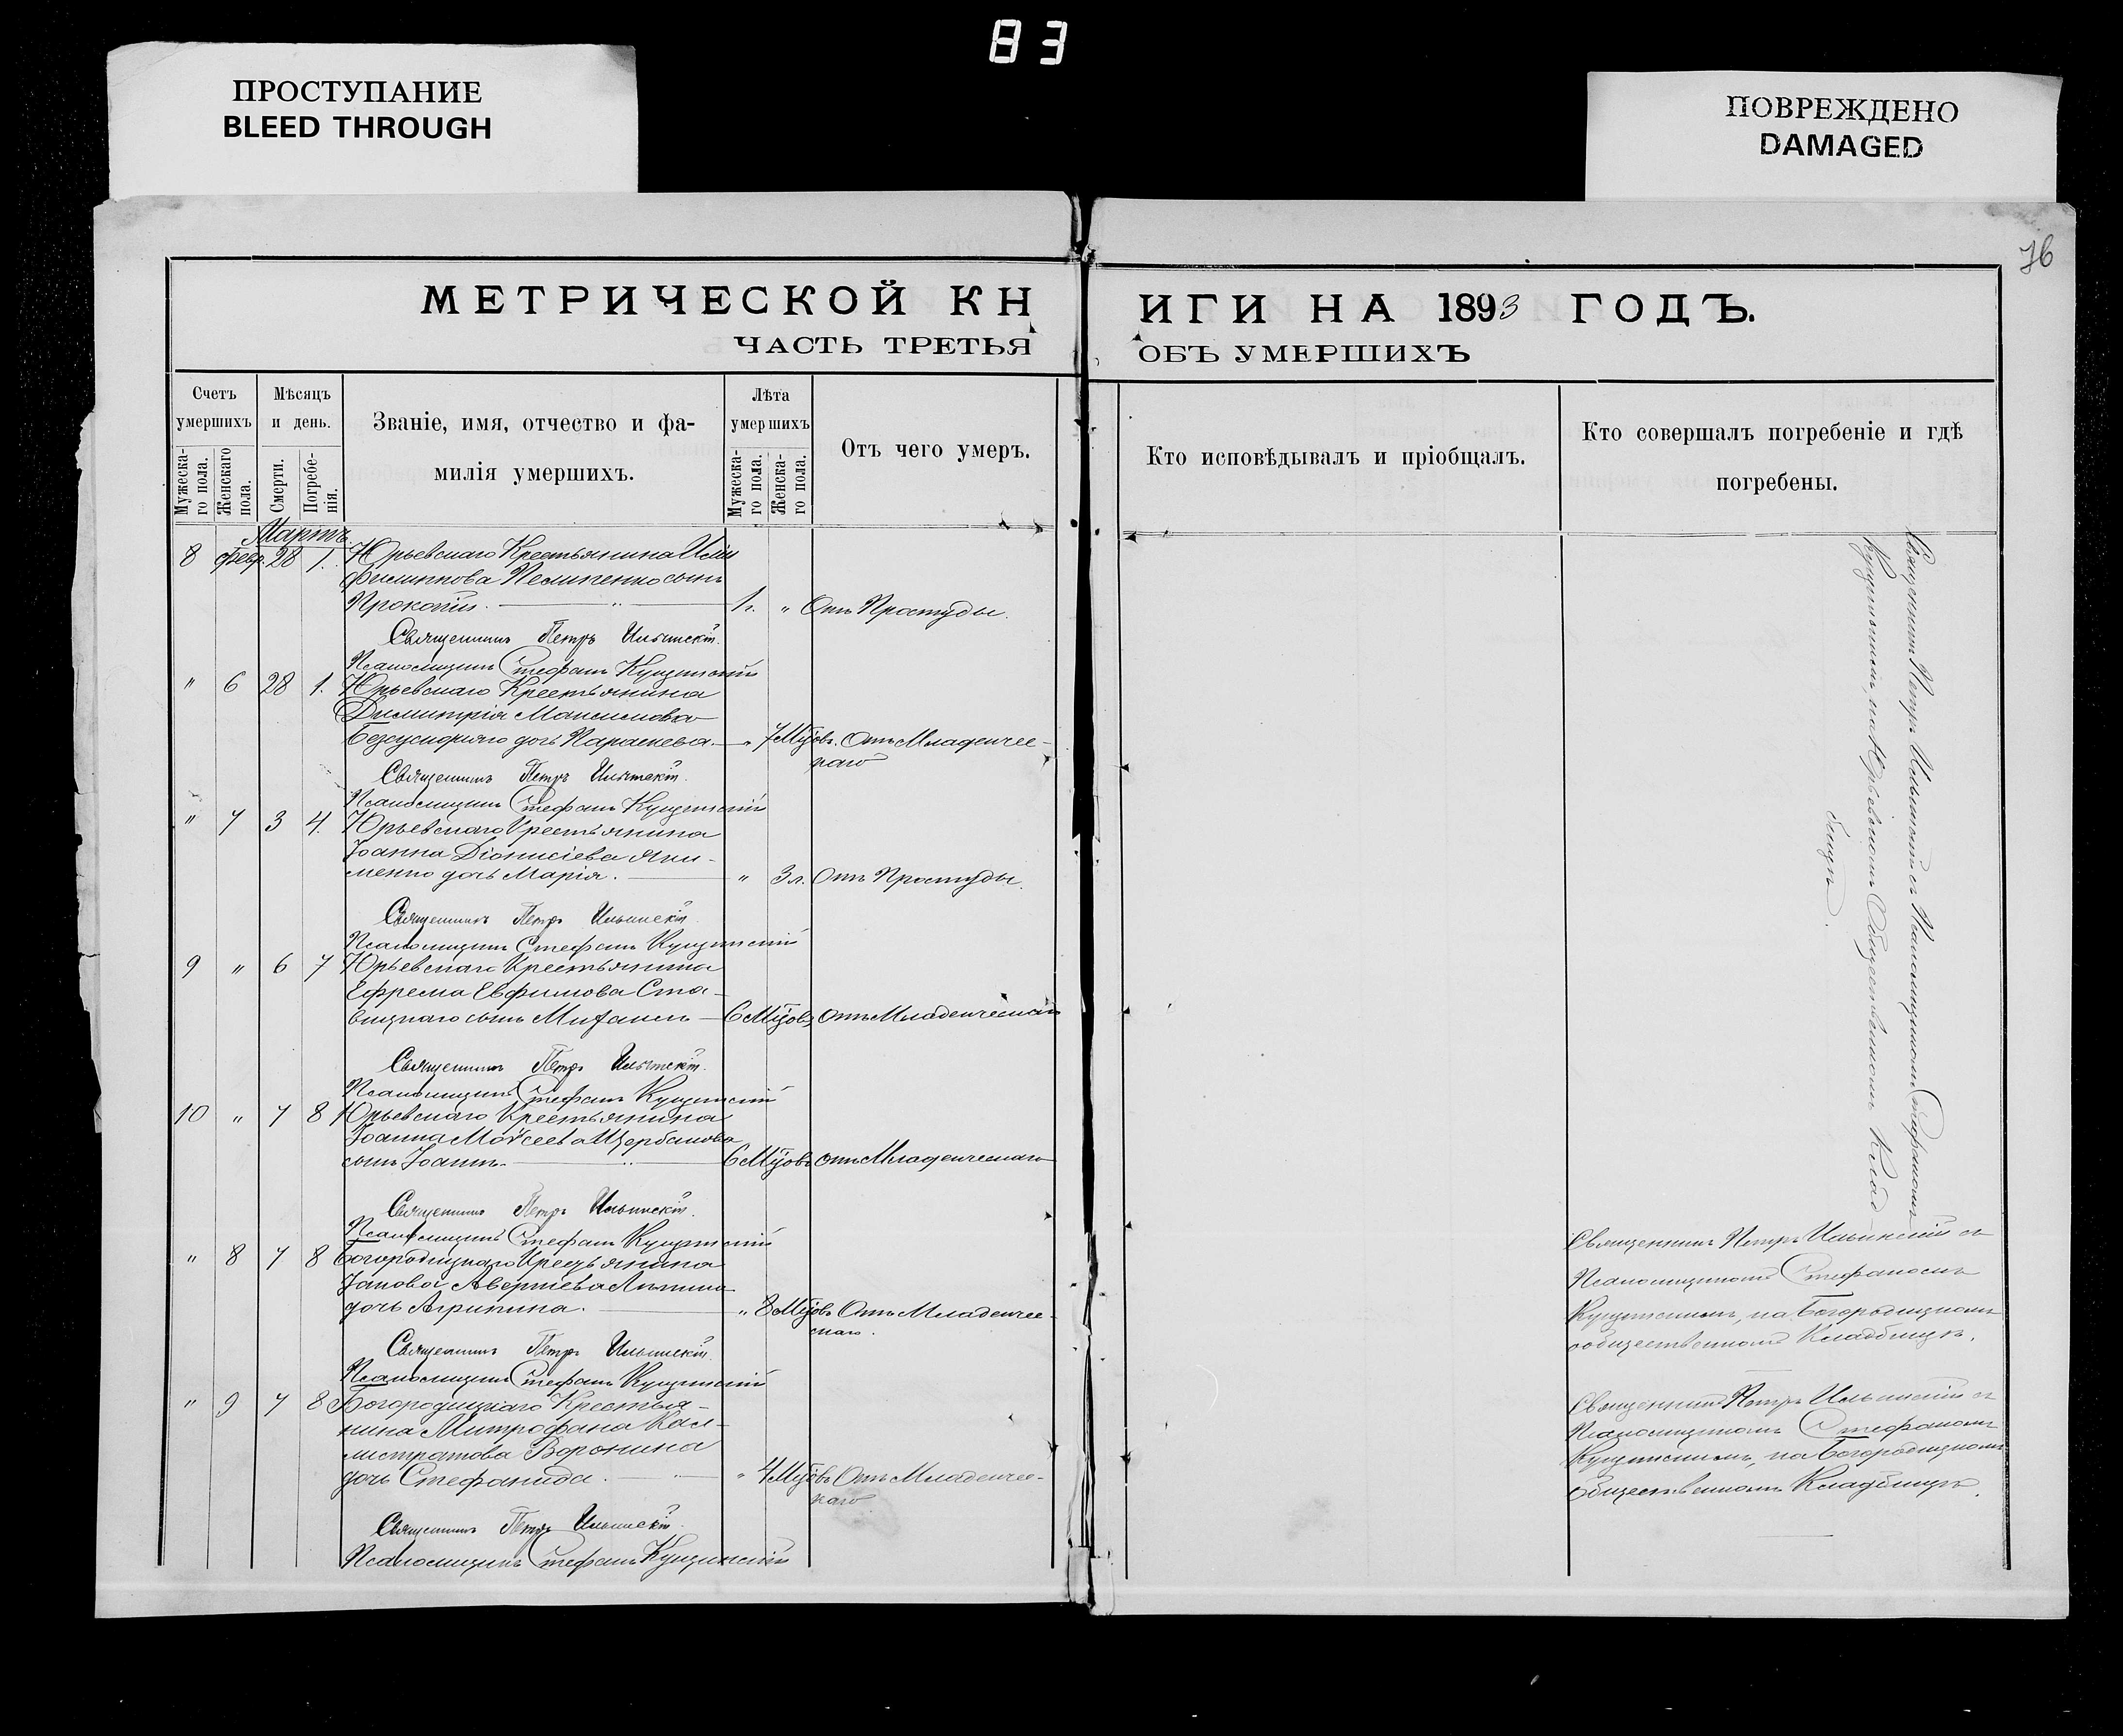 83
ПРОСТУПАНИЕ
BLEED THROUGH
ПОВРЕЖДЕНО
DAMAGED
76
МЕТРИЧЕСКОЙ КН
ИГИ НА 1893 ГОДЪ.
ЧАСТЬ ТРЕТЬЯ
ОБЪ УМЕРШИХЪ
Счетъ умершихъ
Мужеска-
го пола.
Женскаго
пола.
Мѣсяцъ и день.
Смерти.
Погребе-
нія.
Званіе, имя, отчество и фа-
милія умершихъ.
Лѣта умершихъ
Мужеска-
го пола.
Женска-
го пола.
Отъ чего умеръ.
Кто исповѣдывалъ и пріобщалъ.
Кто совершалъ погребеніе и гдѣ
погребены.
Мартъ.
8 Февр. 28 1. Юрьевскаго Крестьянина
Филиппова сынъ
Прокопій. 1 г. " Отъ Простуды.
Священникъ Петръ Ильинскій.
Псаломщикъ Стефанъ Кущинскій
" 6 28 1. Юрьевскаго Крестьянина
Димитрія Максимова
дочь Параскева. " 7 М҃цовъ. Отъ Младенчес-
каго
Священникъ Петръ Ильинскій.
Псаломщикъ Стефанъ Кущинскій
" 7 3 4. Юрьевскаго Крестьянина
Іоанна Діонисіева Яки-
менко дочь Марія. " 3 л. Отъ Простуды.
Священникъ Петръ Ильинскій
Псаломщикъ Стефанъ Кущинскій
9 " 6 7 Юрьевскаго Крестьянина
Ефрема Евфимова Ста-
вицкаго сынъ Михаилъ 6 М҃цовъ Отъ Младенческаго
Священникъ Петръ Ильинскій.
Псаломщикъ Стефанъ Кущинскій
10 " 7 8 Юрьевскаго Крестьянина
Іоанна Моѵсеева Щербакова
сынъ Іоаннъ. 6 М҃цовъ отъ Младенческаго
Священникъ Петръ Ильинскій.
Псаломщикъ Стефанъ Кущинскій
" 8 7 8 Богородицкаго Крестьянина
Іакова Аверкіева
дочь Агрипина. " 8 М҃цовъ Отъ Младенчес-
каго.
Священникъ Петръ Ильинскій.
Псаломщикъ Стефанъ Кущинскій
" 9 7 8 Богородицкаго Крестья-
нина Митрофана Кал-
листратова Воронина
дочь Стефанида. " 4 М҃цовъ Отъ Младенчес-
каго
Священникъ Петръ Ильинскій.
Псаломщикъ Стефанъ Кущинскій
Священникъ Петръ Ильинскій съ Псаломщикомъ Стефаномъ
Кущинскимъ, на Юрьевскомъ Общественномъ Клад
бищѣ.
Священникъ Петръ Ильинскій съ
Псаломщикомъ Стефаномъ
Кущинскимъ, на Богородицкомъ
общественномъ Кладбищѣ.
Священникъ Петръ Ильинскій съ
Псаломщикомъ Стефаномъ
Кущинскимъ, на Богородицкомъ
Общественномъ Кладбищѣ.